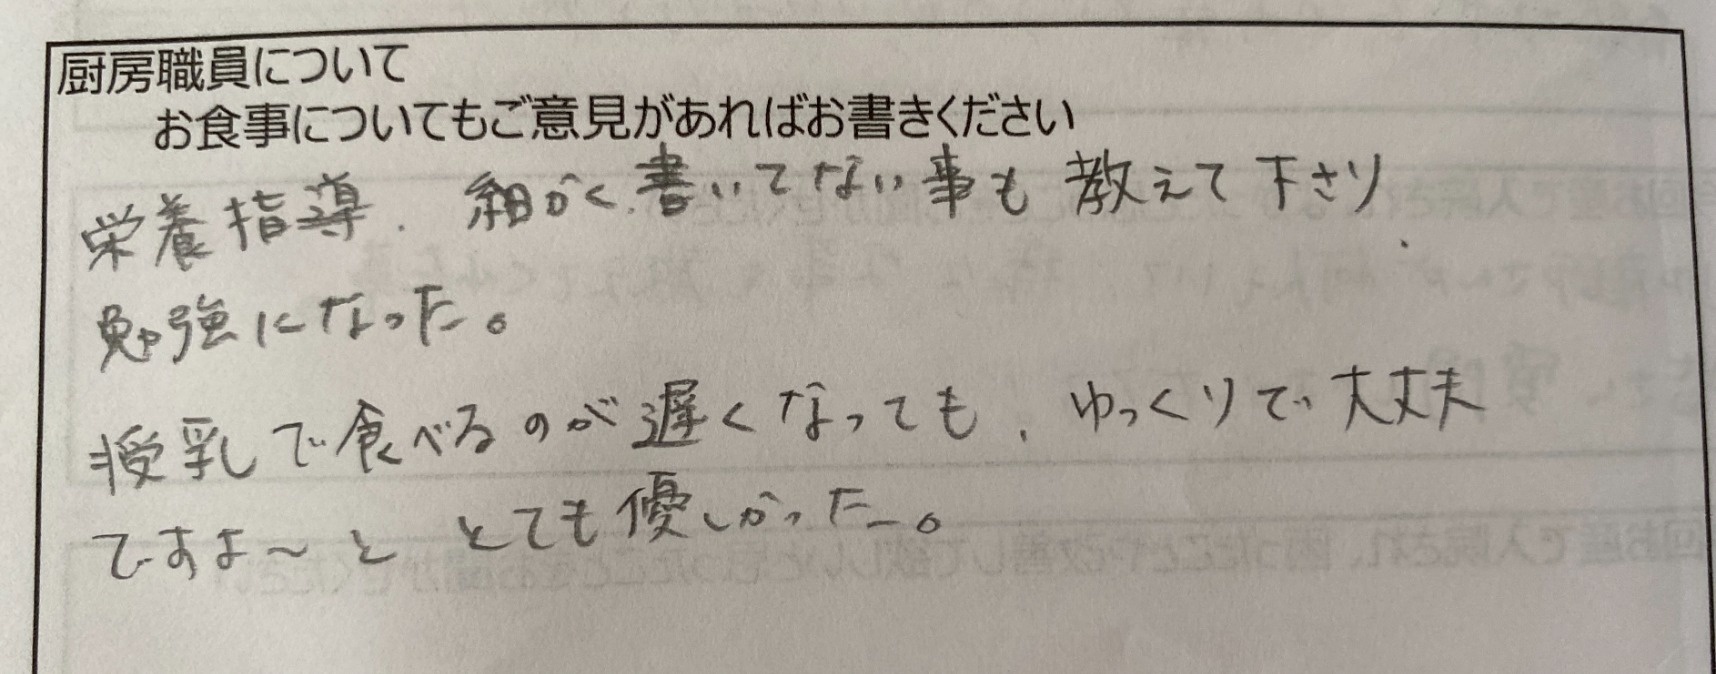 厨房職員について
お食事についてもご意見があればお書きください
栄養指導、細かく書いてない事も教えて下さり、
勉強になった。
授乳で食べるのが遅くなっても、ゆっくりで大丈夫
ですよ～と とても優しかった。